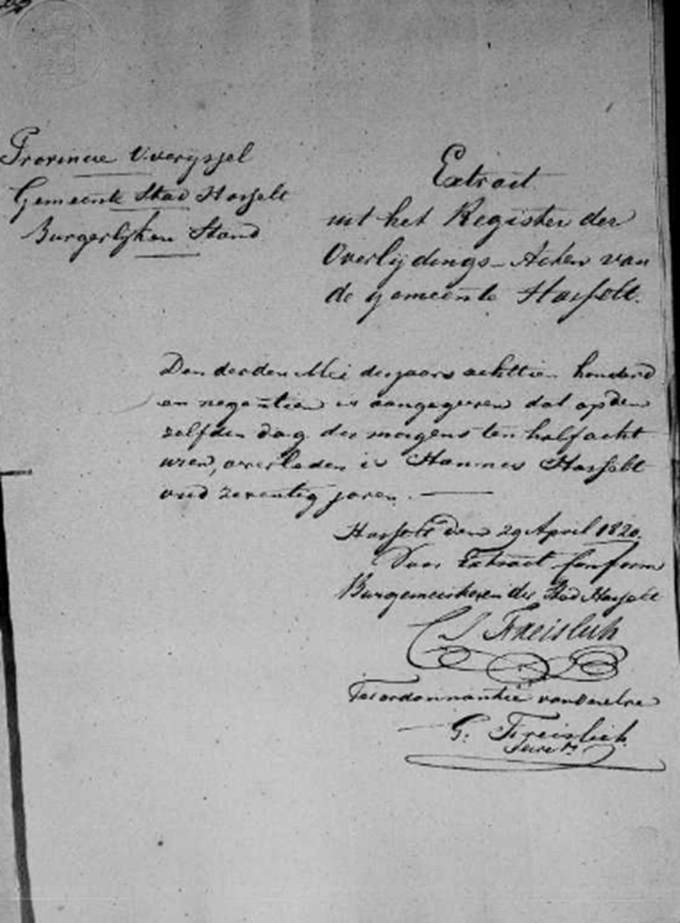 Provincie Overyssel
Gemeente Stad Hasselt
Burgerlyken Stand
Extract
uit het Register der
Overlydings-Acten van
de gemeente Hasselt.
Den derden Mei des jaars achttien honderd
en negentien is aangegeven dat op den
zelfden dag des morgens ten half acht
uren, overleden is Hannes Hasselt
oud zeventig jaren.
Hasselt den 29 April 1820.
Voor Extract Conform
Burgemeesteren der Stad Hasselt
Freislich
Ter ordonnantie van dezelve
G. Freislich
Secrets